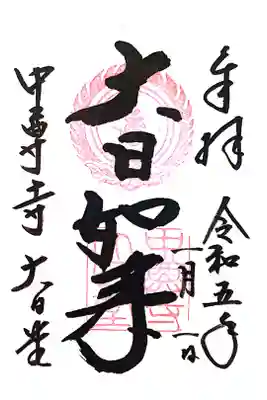 奉拝
令和五年
一月一日
大日如来
中尊寺 大日堂